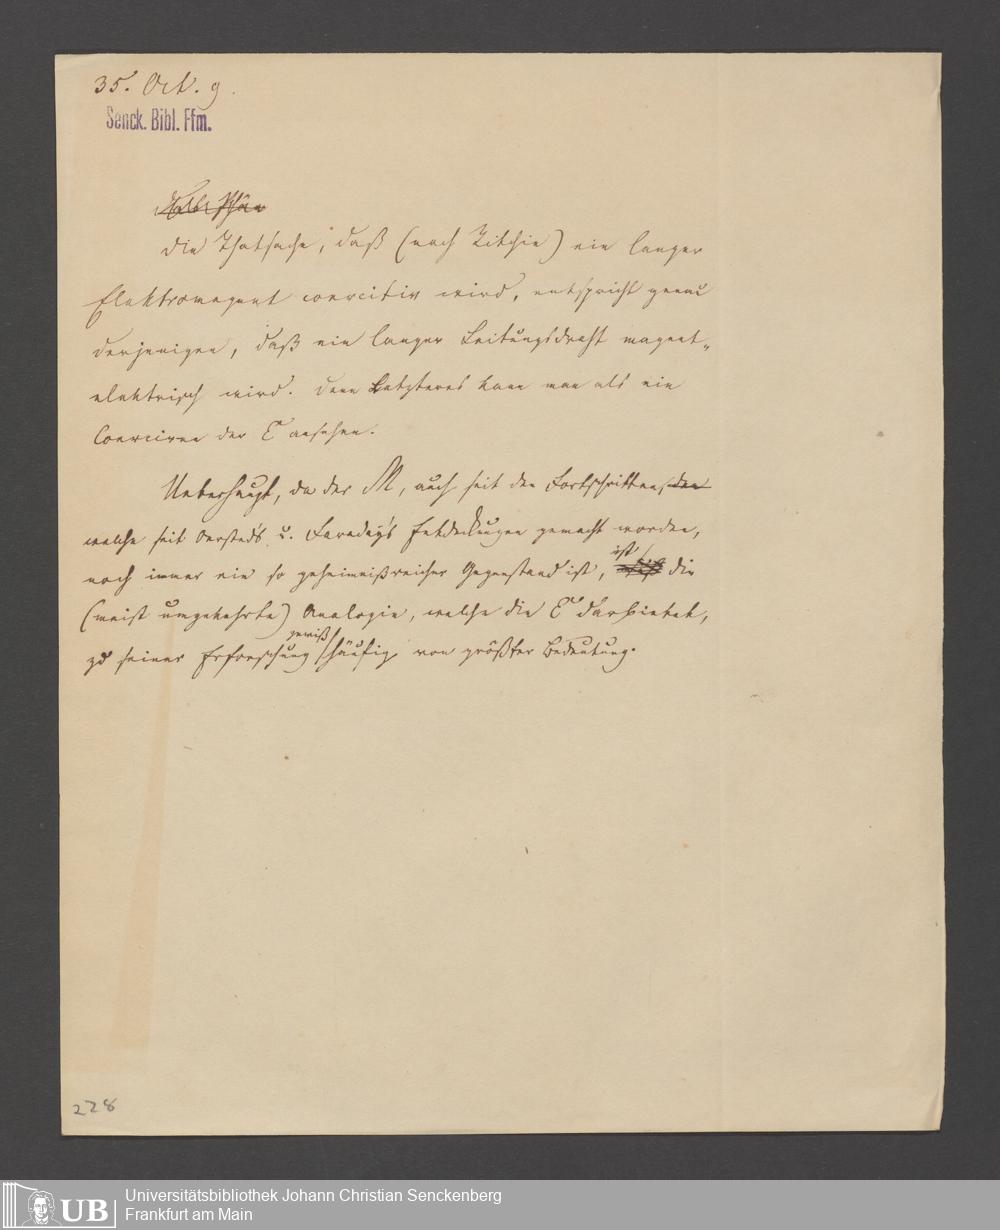 35. Oct. 9.
Senck. Bibl. Ffm.
Die Thatsache, daß (nach Ritchie) ein langer
Elektromagnet coercitiv wird, entspricht genau
derjenigen, daß ein langer Leitungsdraht magnet„
elektrisch wird. Denn Letzteres kann man als ein
Coerciren der E ansehen.
Ueberhaupt, da der M, auch seit den Fortschritten, den
welche seit Oersted's u. Faraday's Entdeckungen gemacht worden,
noch immer ein so geheimnißreicher Gegenstand ist, ist die
(meist umgekehrte) Analogie, welche die E darbietet,
zu seiner Erforschung gewiß häufig von größter Bedeutung.
228
UB
Universitätsbibliothek Johann Christian Senckenberg
Frankfurt am Main